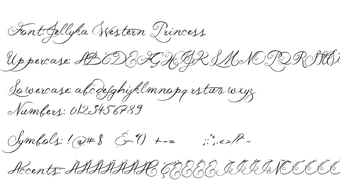 Font: Jellyka Western Princess
Uppercase: ABCDEFGHIJKLMNOPQRSTU
Lowercase: abcdefghijklmnopqrstuvwxyz
Numbers: 0123456789
Symbols: !@#$ &*() +-=
Accents: